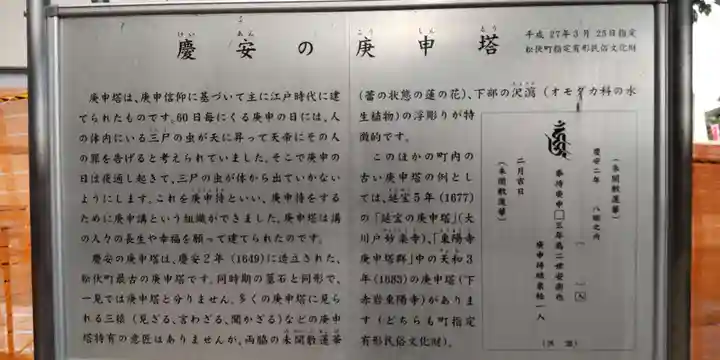 慶安の庚申塔
けいあん こうしんとう
平成 27年3月25日指定
松伏町指定有形民俗文化財
庚申塔は、庚申信仰に基づいて主に江戸時代に建
てられたものです。60日毎にくる庚申の日には、人
の体内にいる三尸の虫が天に昇って天帝にその人
の罪を告げると考えられていました。そこで庚申の
日は夜通し起きて、三尸の虫が体から出ていかない
ようにします。これを庚申待といい、庚申待をする
ために庚申講という組織ができました。庚申塔は講
の人々の長生や幸福を願って建てられたのです。
慶安の庚申塔は、慶安2年(1649)に造立された、
松伏町最古の庚申塔です。同時期の墓石と同形で、
一見では庚申塔と分りません。多くの庚申塔に見ら
れる三猿(見ざる、言わざる、聞かざる)などの庚申
塔特有の意匠はありませんが、両脇の未開敷蓮華
(蕾の状態の蓮の花)、下部の沢瀉(オモダカ科の水
生植物)の浮彫りが特
徴的です。
このほかの町内の
古い庚申塔の例とし
ては、延宝5年(1677)
の「延宝の庚申塔」(大
川戸妙楽寺)、「東陽寺
庚申塔群」中の天和3
年(1683)の庚申塔(下
赤岩東陽寺)があります
(どちらも町指定
有形民俗文化財)。
(未開敷蓮華)
慶安二年 八條之内
奉待庚申□三年為二世安楽也
庚申待結衆拾一人
二月吉日
(未開敷蓮華)
(沢瀉)